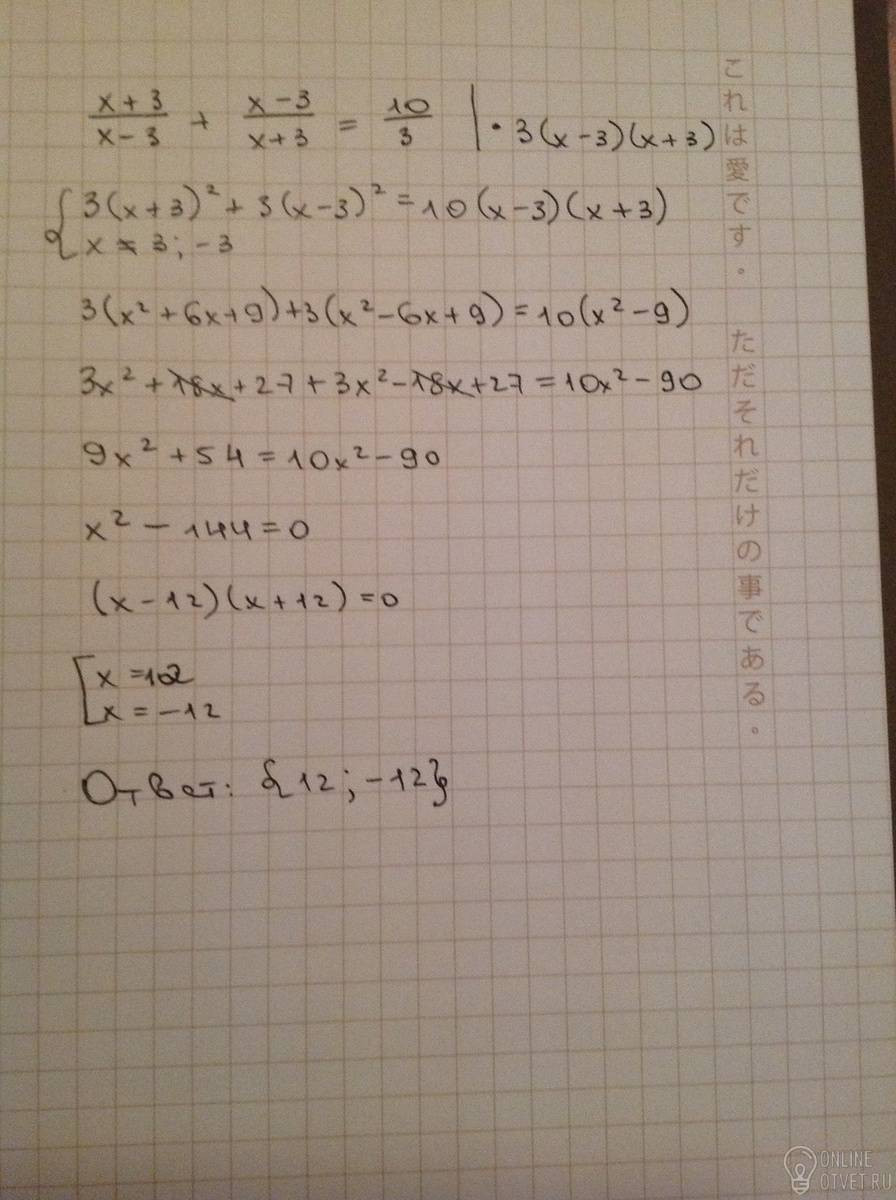 x+3/x−3 + x−3/x+3 = 10/3 | · 3(x−3)(x+3)
{3(x+3)² + 3(x−3)² = 10(x−3)(x+3)
x ≠ 3; −3
3(x² + 6x + 9) + 3(x² − 6x + 9) = 10(x² − 9)
3x² + 18x + 27 + 3x² − 18x + 27 = 10x² − 90
9x² + 54 = 10x² − 90
x² − 144 = 0
(x − 12)(x + 12) = 0
[x = 12
x = −12
Ответ: {12; −12}
これは愛です。ただそれだけの事である。
ONLINE
OTVET.RU